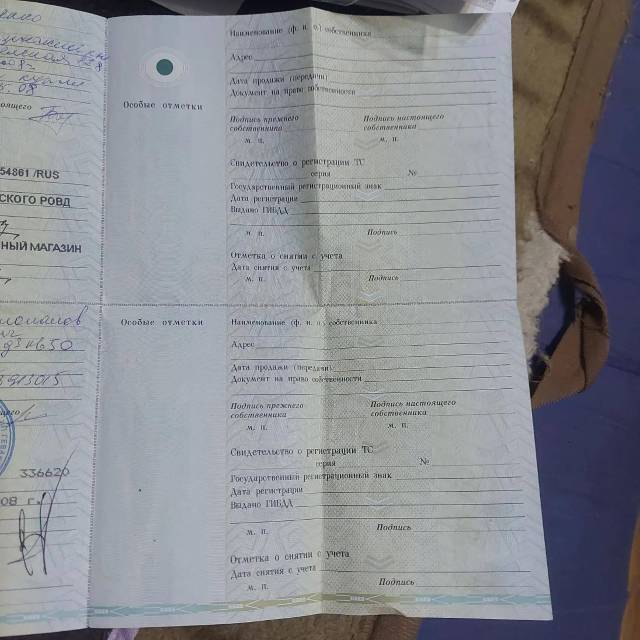 54861 /RUS
СКОГО РОВД
НЫЙ МАГАЗИН
336620
08 г.
Особые отметки
Наименование (ф. и. о.) собственника
Адрес
Дата продажи (передачи)
Документ на право собственности
Подпись прежнего собственника
Подпись настоящего собственника
м. п.
м. п.
Свидетельство о регистрации ТС
серия №
Государственный регистрационный знак
Дата регистрации
Выдано ГИБДД
м. п. Подпись
Отметка о снятии с учета
Дата снятия с учета
м. п. Подпись
Особые отметки
Наименование (ф. и. о.) собственника
Адрес
Дата продажи (передачи)
Документ на право собственности
Подпись прежнего собственника
Подпись настоящего собственника
м. п.
м. п.
Свидетельство о регистрации ТС
серия №
Государственный регистрационный знак
Дата регистрации
Выдано ГИБДД
м. п. Подпись
Отметка о снятии с учета
Дата снятия с учета
м. п. Подпись